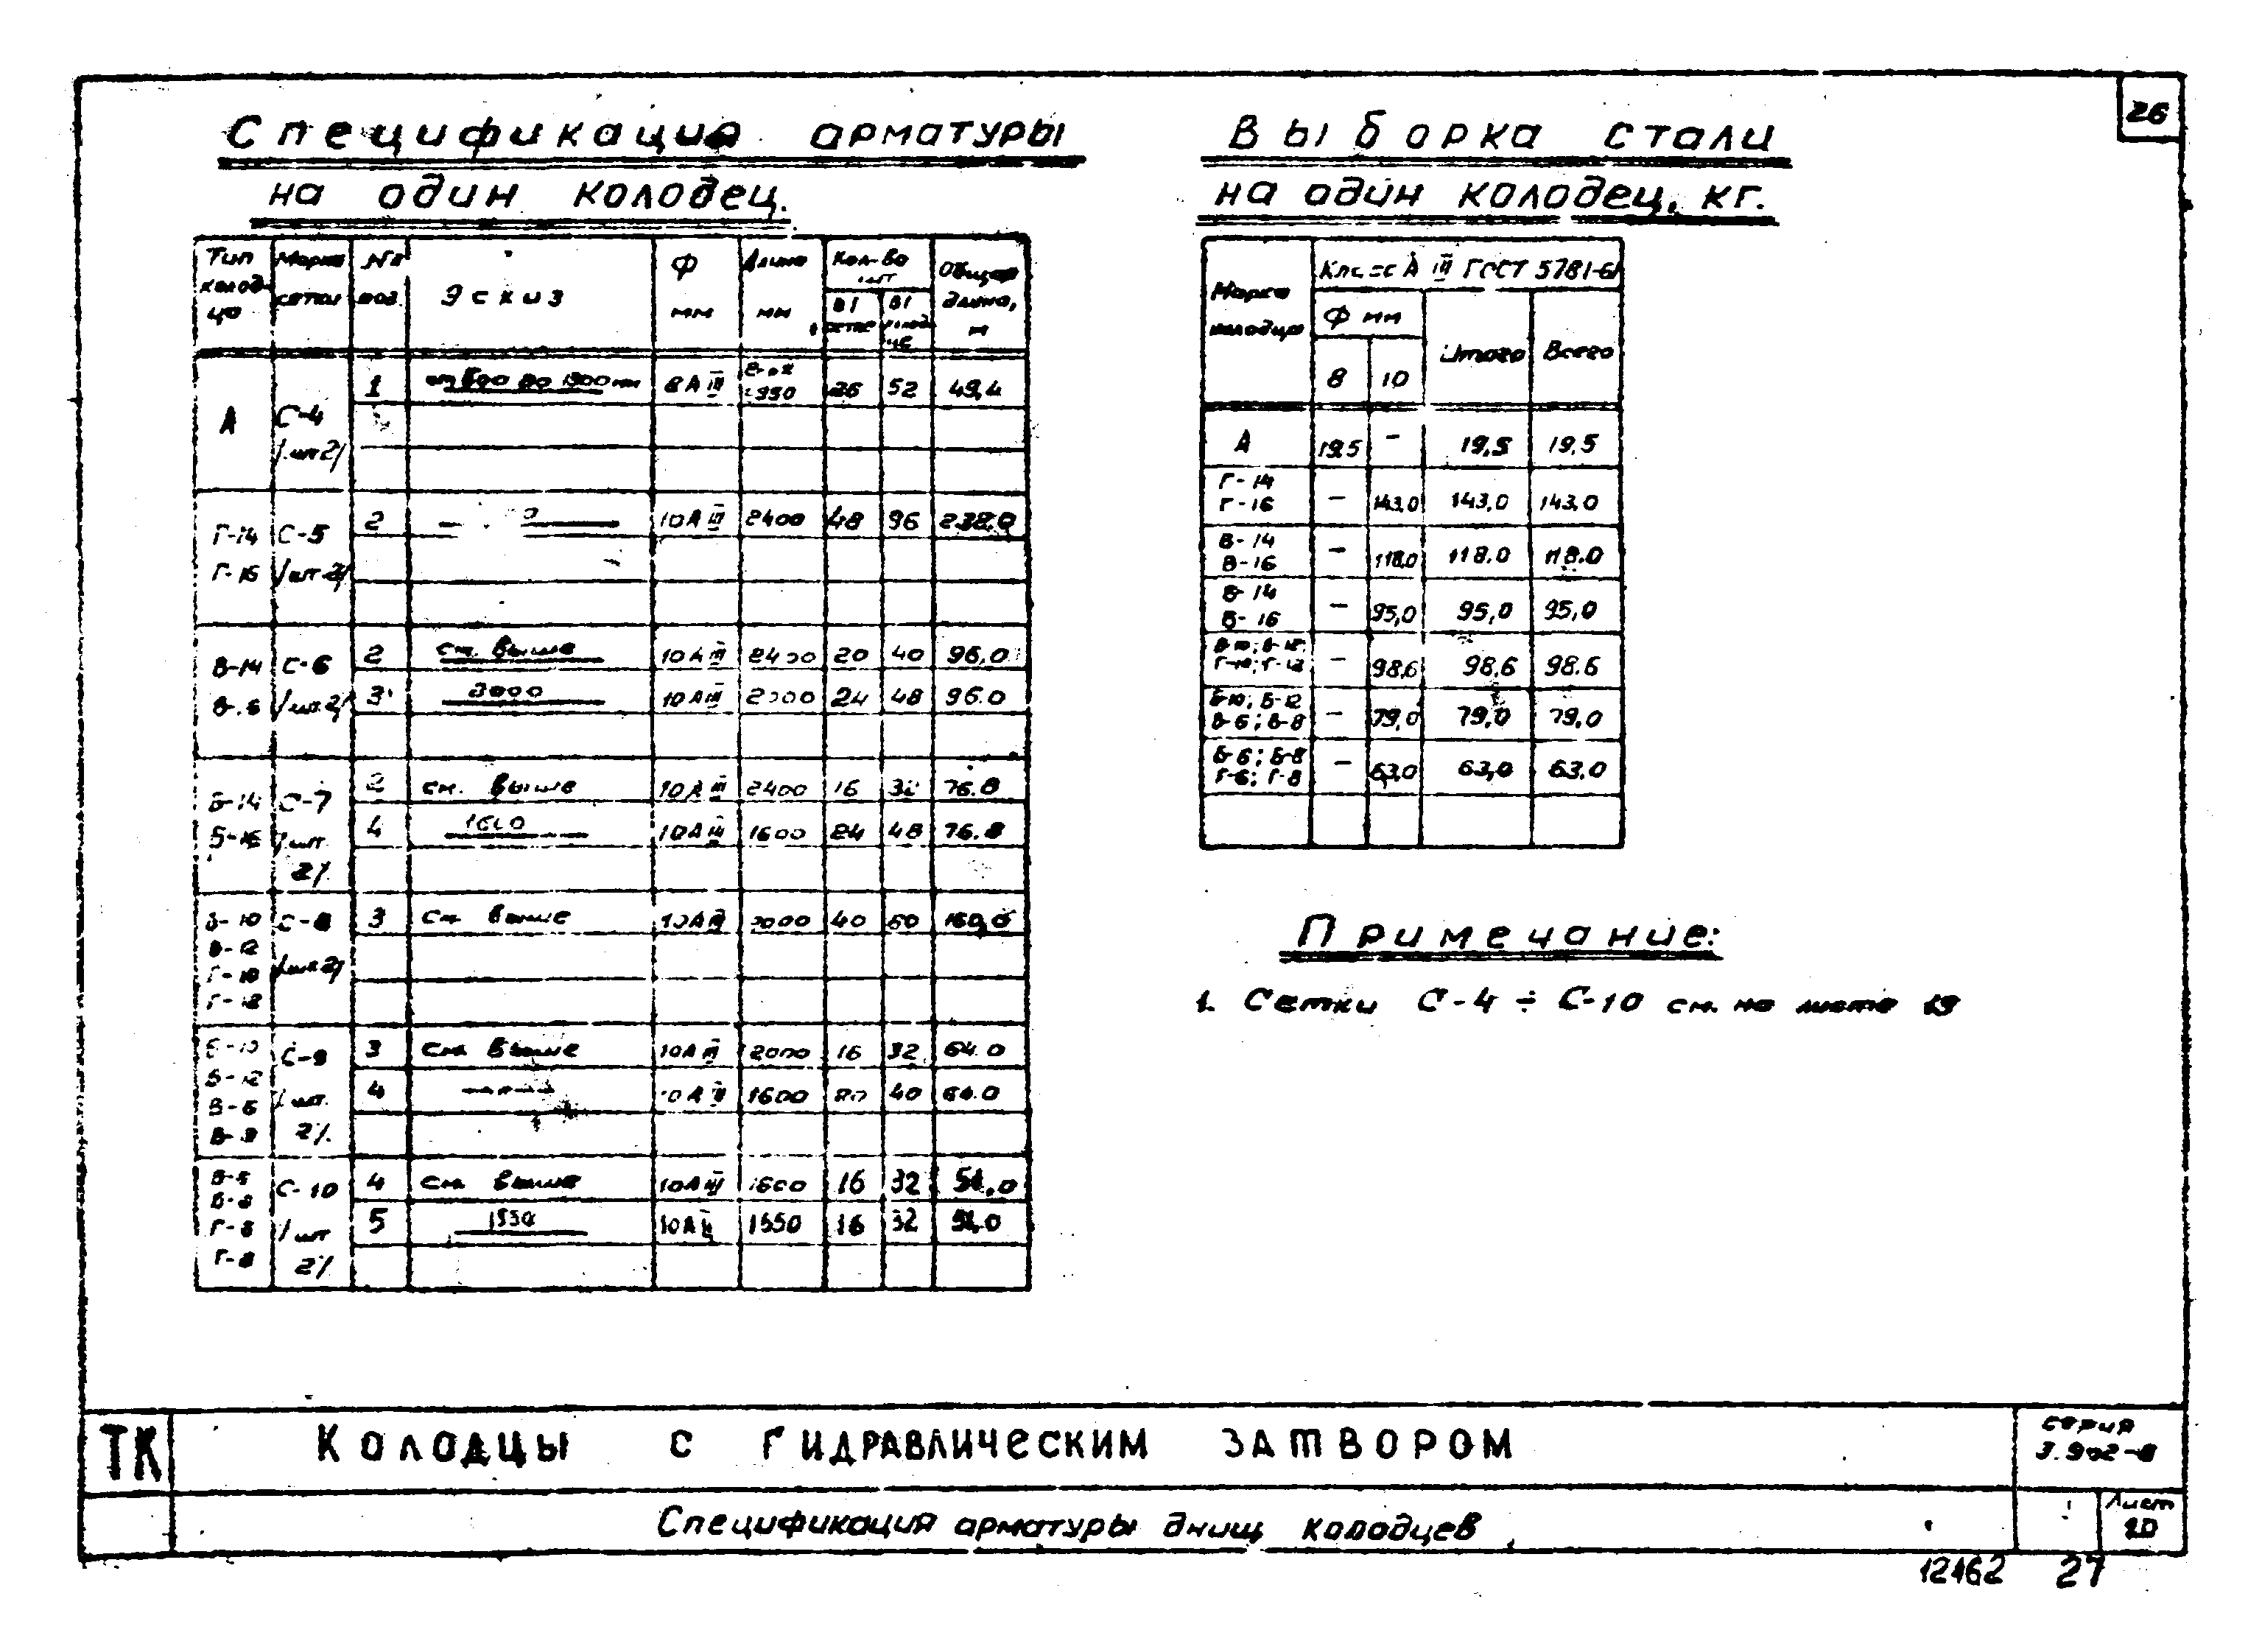 26
Спецификация арматуры
на один колодец.
Тип колодца Марка сетки №№ поз. Эскиз Ф мм Длина мм Кол-во шт Общая длина, м
в 1 сетке в 1 колодце
А С-4 /шт 2/ 1 от 600 до 1300 мм 8АIII 26 52 49,4
Г-14 Г-16 С-5 /шт 2/ 2 10АIII 2400 48 96
В-14 С-6 /шт 2/ 2 см. выше 10АIII 2400 20 40 96.0
3 2000 10АIII 2000 24 48 96.0
Б-14 Б-16 С-7 /шт 2/ 2 см. выше 10АIII 2400 16 32 76.8
4 1600 10АIII 1600 24 48 76.8
В-10 В-12 Г-10 Г-12 С-8 /шт 2/ 3 см выше 10АIII 2000 40 160,0
Б-10 Б-12 В-6 В-8 С-9 /шт. 2/ 3 см выше 10АIII 2000 16 32 64.0
4 —"— 10АIII 1600 20 40 64.0
С-10 /шт 2/ 4 см выше 10АIII 1600 16 32
5 10АIII 16 32
Выборка стали
на один колодец, кг.
Марка колодца Класс А III ГОСТ 5781-61
Ф мм Итого Всего
8 10
А 19.5 – 19,5 19,5
Г-14
Г-16 – 143,0 143,0 143,0
В-14
В-16 – 118,0 118.0 118.0
Б-14
Б-16 – 95,0 95,0 95,0
В-10; В-12;
Г-10; Г-12 – 98,6 98,6 98.6
Б-10; Б-12
В-6; В-8 – 79,0 79,0 79,0
Б-6; Б-8
Г-6; Г-8 – 63,0 63,0 63.0
Примечание:
1. Сетки С-4 ÷ С-10 см. на листе 19
ТК Колодцы с гидравлическим затвором серия
3.902-8
Спецификация арматуры днищ колодцев Лист
20
12162 27